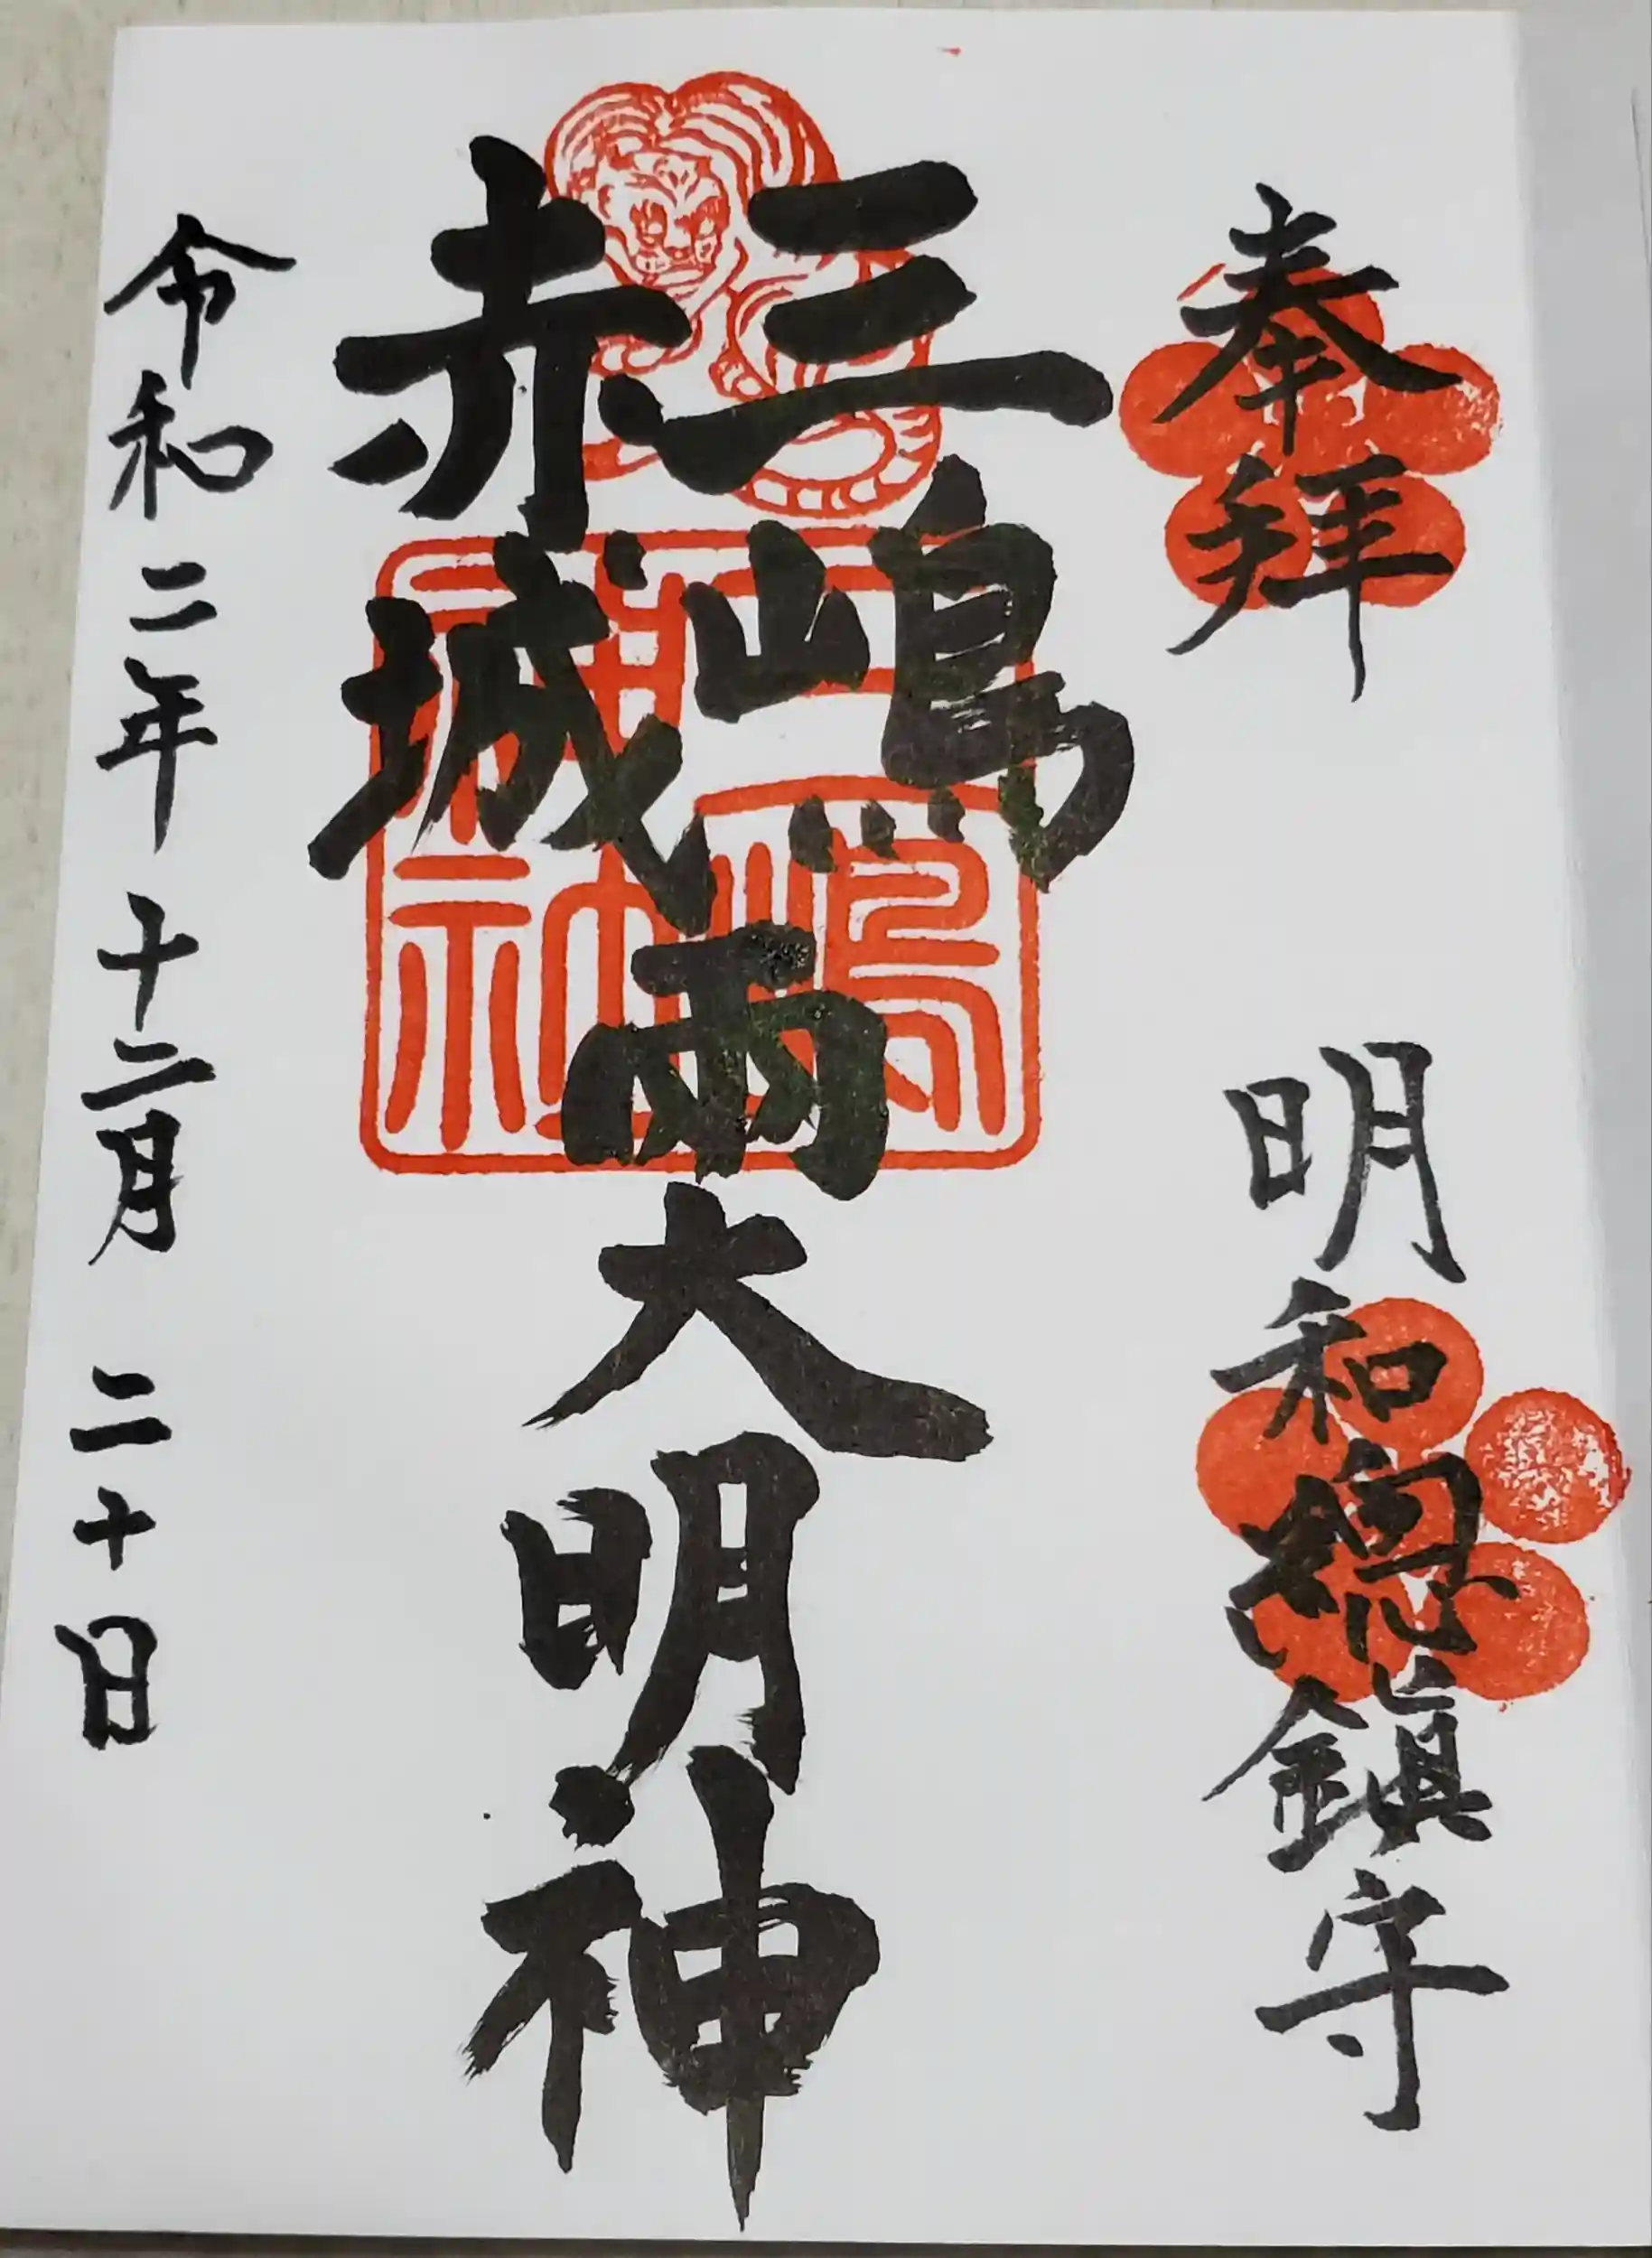 奉拝
明和總鎮守
三嶋
赤城
両大明神
令和二年十二月二十日
三嶋神社